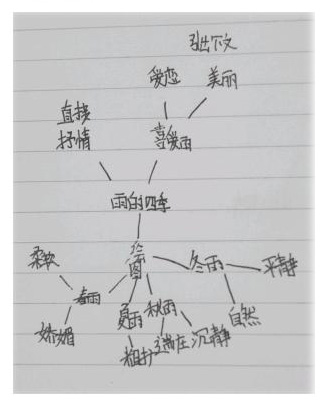 引出下文
爱恋 美丽
直接
抒情
喜爱雨
雨的四季
绘
图
柔软
春雨
娇媚
夏雨
粗犷
秋雨
端庄
沉静
冬雨
平静
自然